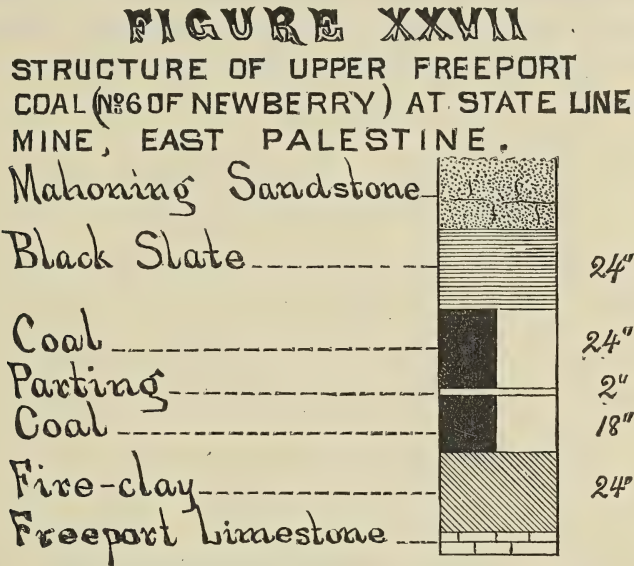 FIGURE XXVII
STRUCTURE OF UPPER FREEPORT
COAL (Nº6 OF NEWBERRY) AT STATE LINE
MINE, EAST PALESTINE.
Mahoning Sandstone
Black Slate 24"
Coal 24"
Parting 2"
Coal 18"
Fire-clay 24"
Freeport Limestone